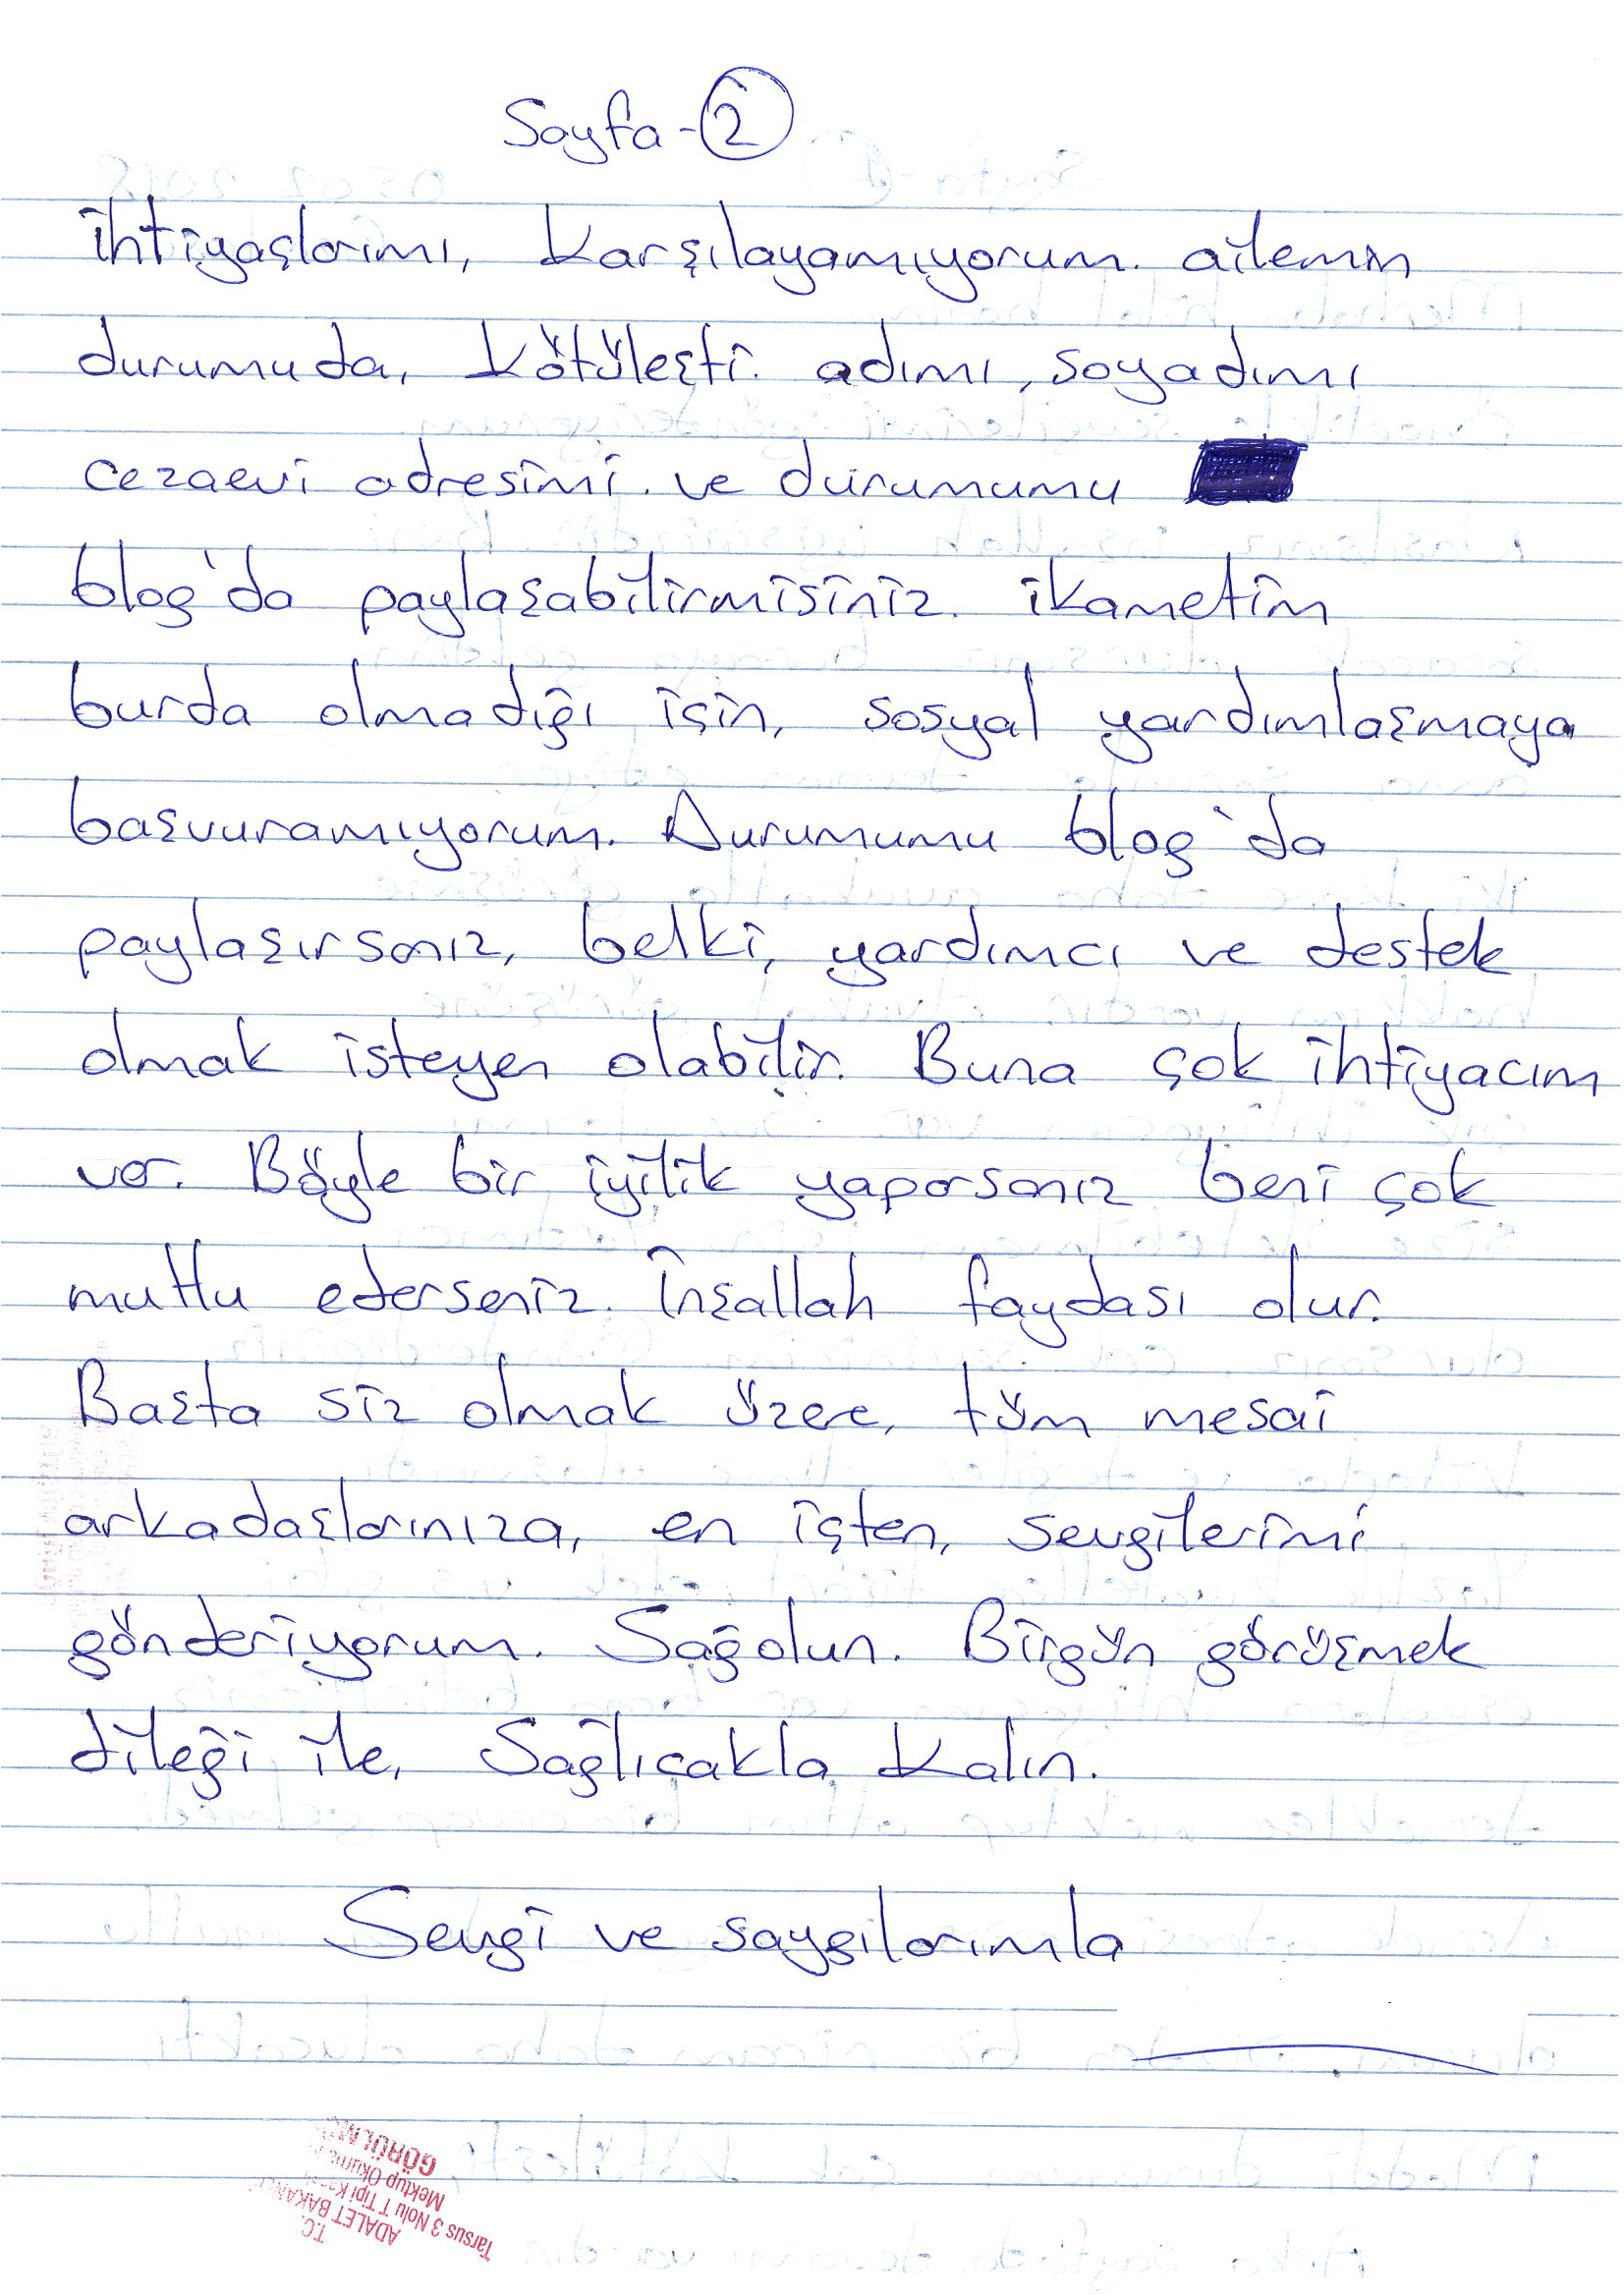 Sayfa-2
ihtiyaçlarımı, karşılayamıyorum. ailemin
durumuda, kötüleşti. adımı, soyadımı
cezaevi adresimi. ve durumumu
blog'da paylaşabilirmisiniz. ikametim
burda olmadığı için, sosyal yardımlaşmaya
başvuramıyorum. Durumumu blog'da
paylaşırsanız, belki, yardımcı ve destek
olmak isteyen olabilir. Buna çok ihtiyacım
var. Böyle bir iyilik yaparsanız beni çok
mutlu ederseniz. İnşallah faydası olur.
Başta siz olmak üzere, tüm mesai
arkadaşlarınıza, en içten, sevgilerimi
gönderiyorum. Sağolun. Birgün görüşmek
dileği ile, Sağlıcakla kalın.
Sevgi ve saygılarımla
T.C.
ADALET
Tarsus 3 Nolu T Tipi
Mektup Okuma